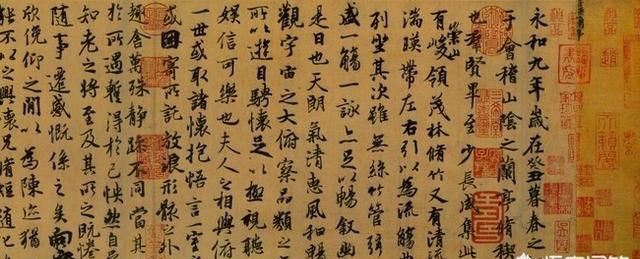 永和九年歲在癸丑暮春之
于會稽山陰之蘭亭脩稧
也群賢畢至少長咸集此
有崇山峻領茂林脩竹又有清流
湍暎帶左右引以為流觴曲
列坐其次雖無絲竹管弦
盛一觴一詠亦足以暢敘幽
是日也天朗氣清惠風和暢
觀宇宙之大俯察品類之
所以遊目騁懷足以極視聽
娛信可樂也夫人之相與俯
一世或取諸懷抱悟言一室
或因寄所託放浪形骸之外
趣舍萬殊靜躁不同當其
於所遇暫得於己怏然自
知老之將至及其所之既惓
隨事遷感慨係之矣向
欣俛仰之間以為陳迹猶
能不以之興懷況脩短隨化